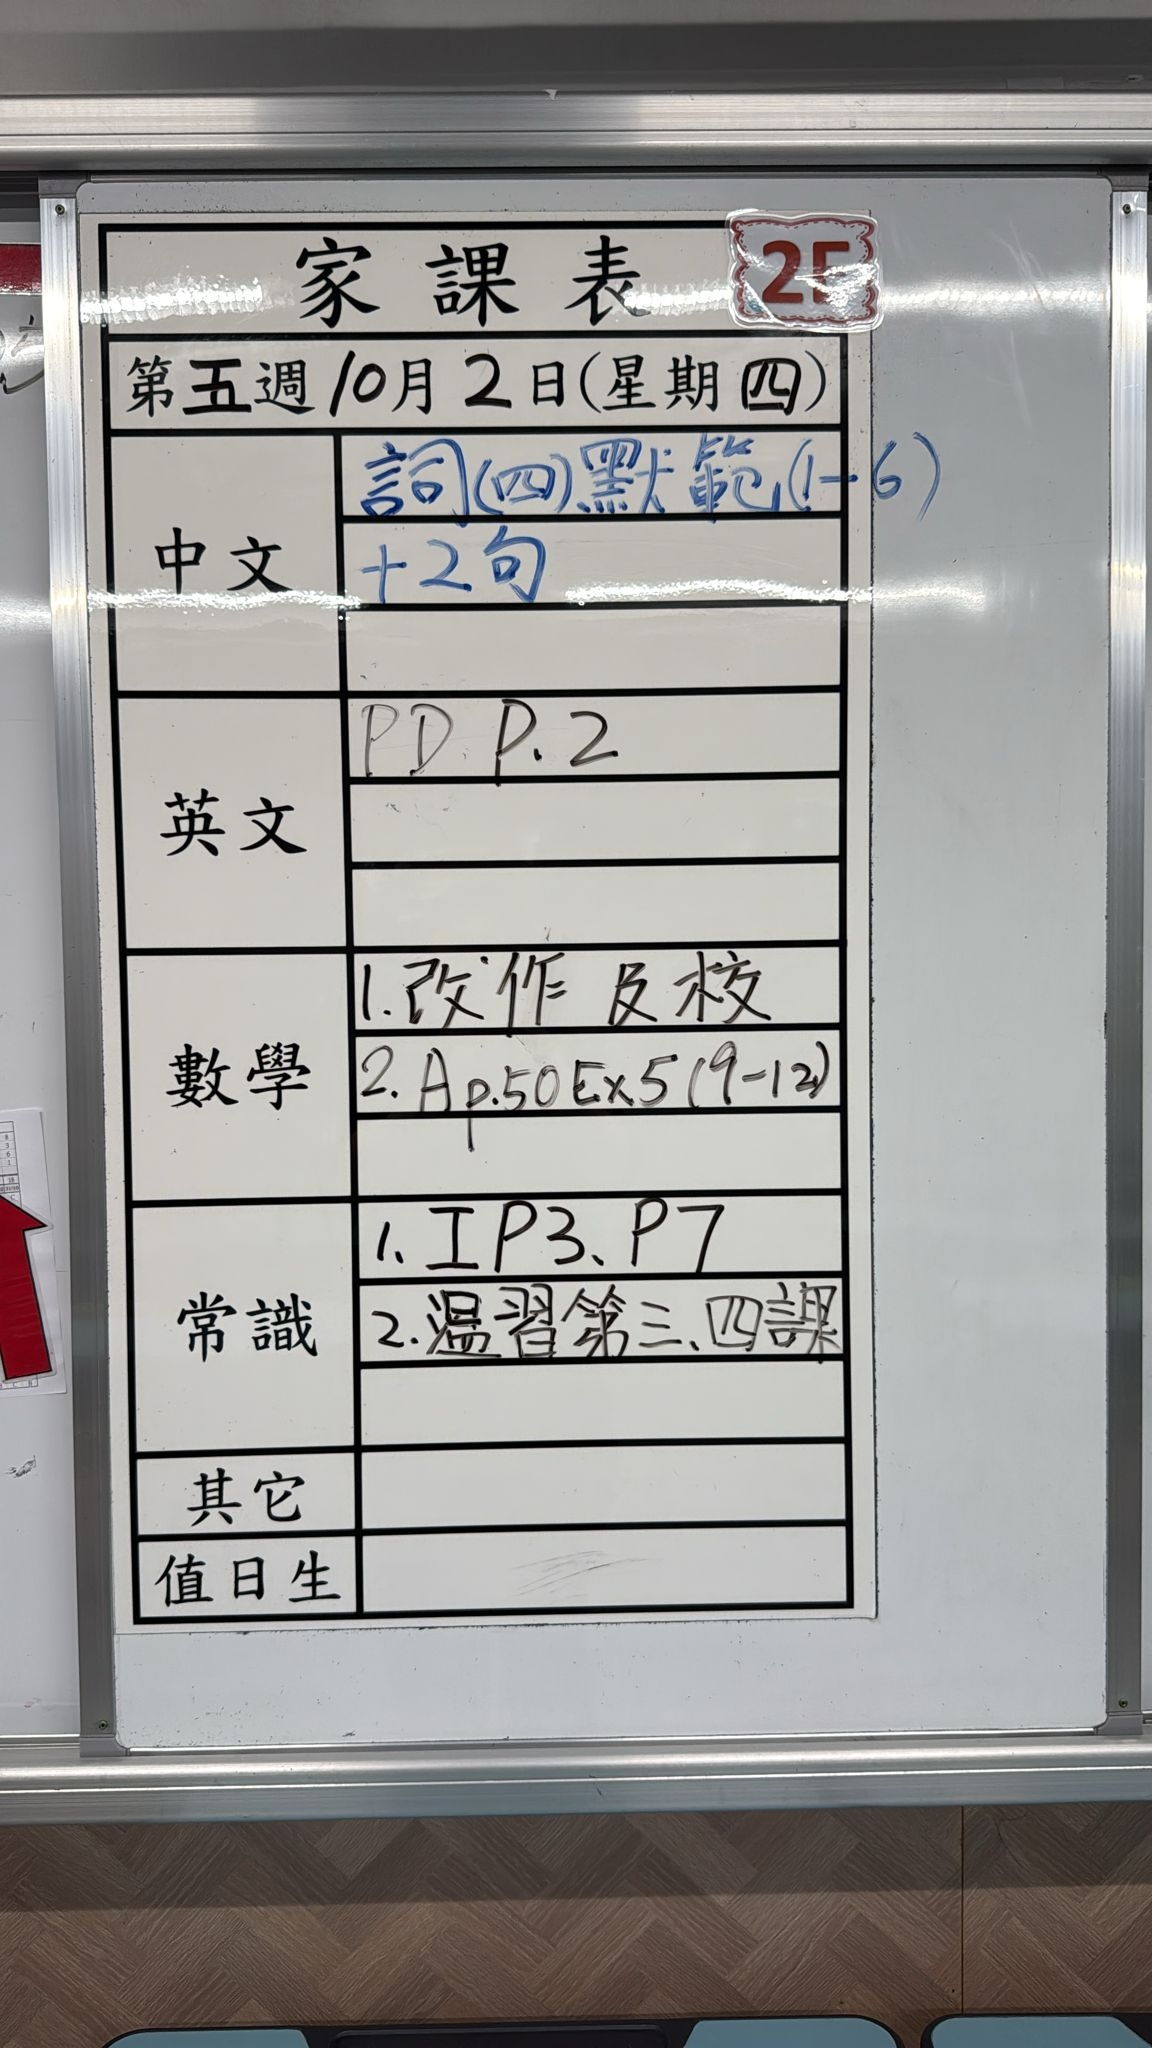 家課表
2F
第五週10月2日(星期四)
中文
詞(四)默範(1-6)
+2句
英文
PD P.2
數學
1.改作及校
2. A p.50 Ex5(9-12)
常識
1. I P3、P7
2.溫習第三、四課
其它
值日生